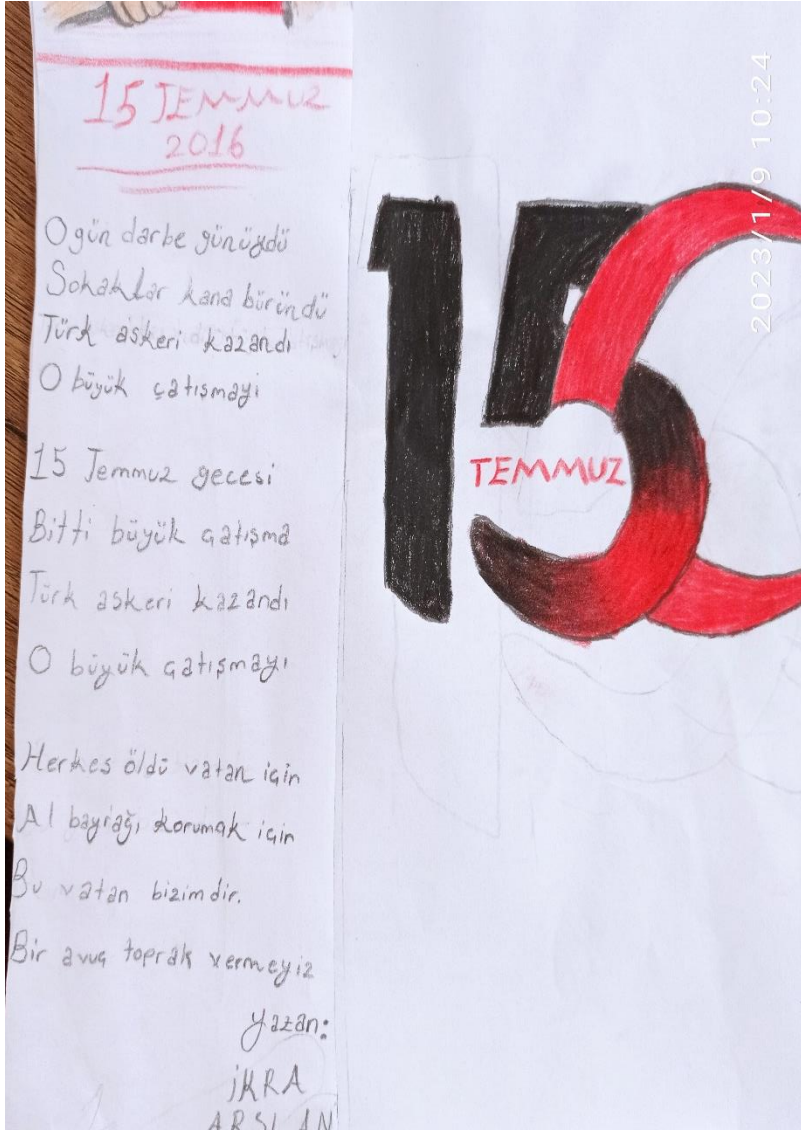 15 TEMMUZ
2016
O gün darbe günüydü
Sokaklar kana büründü
Türk askeri kazandı
O büyük çatışmayi
15 Temmuz gecesi
Bitti büyük çatışma
Türk askeri kazandı
O büyük çatışmayı
Herkes öldü vatan için
Al bayrağı korumak için
Bu vatan bizimdir.
Bir avuç toprak vermeyiz
Yazan:
İKRA
ARSLAN
15
TEMMUZ
2023/1/9 10:24